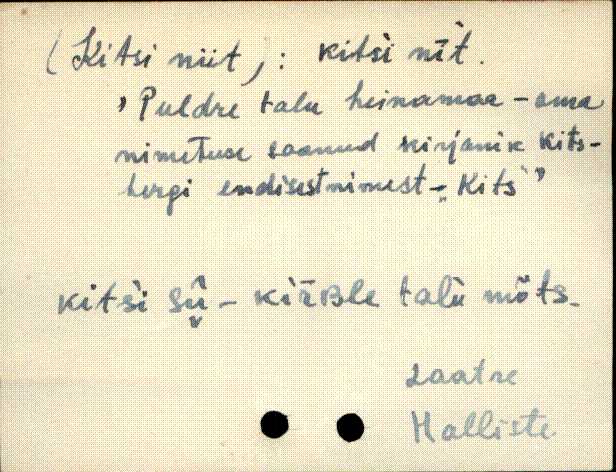 (Kitsi niit,: kitsi nīt.
" Puldre talu heinamaa – oma
nimetuse saanud kirjanik Kits-
bergi endisest nimest – „Kits"
kitsi sū – kīrʙle talu mõts.
Laatre
Halliste